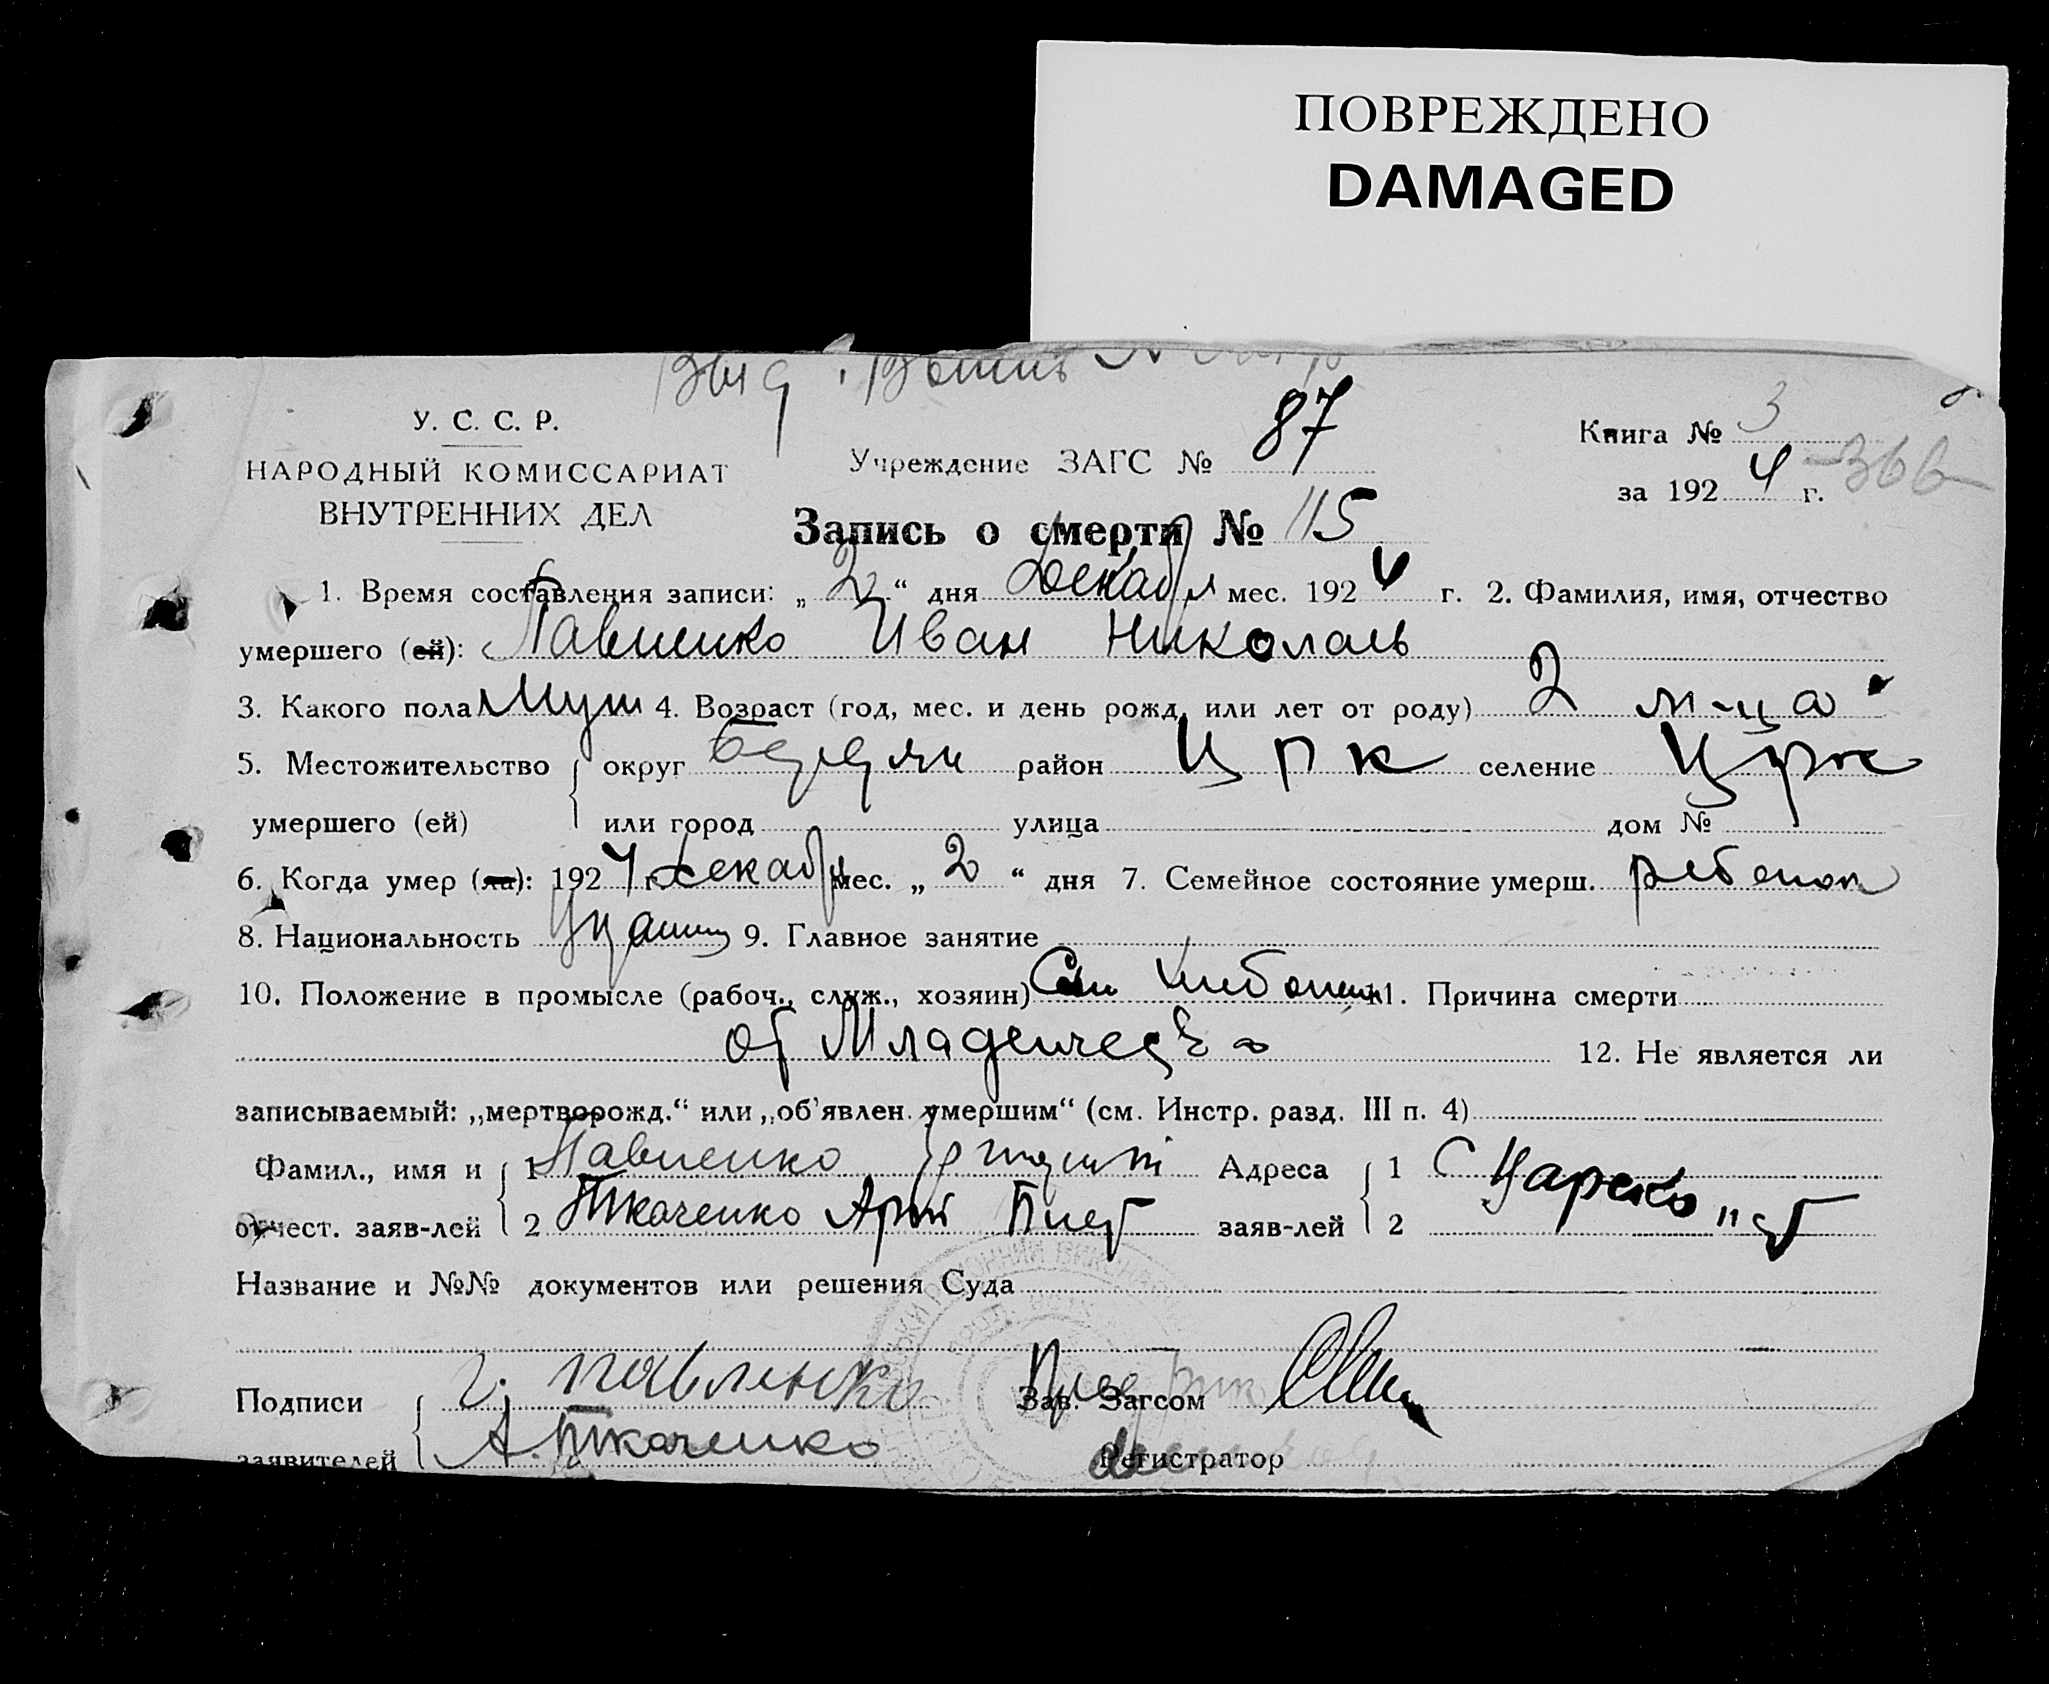 ПОВРЕЖДЕНО
DAMAGED
У. С. С. Р.
НАРОДНЫЙ КОМИССАРИАТ
ВНУТРЕННИХ ДЕЛ
Учреждение ЗАГС № 87
Книга № 3
за 1924 г.
Запись о смерти № 115
1. Время составления записи: „2“ дня Декабря мес. 1924 г. 2. Фамилия, имя, отчество
умершего (ей): Павленко Иван Николаев
3. Какого пола Муж 4. Возраст (год, мес. и день рожд. или лет от роду) 2 м-ца
5. Местожительство округ район Црк селение
умершего (ей) или город улица дом №
6. Когда умер (ла): 1924 г. Декабря мес. „2“ дня 7. Семейное состояние умерш. ребенок
8. Национальность 9. Главное занятие
10. Положение в промысле (рабоч., служ., хозяин) 11. Причина смерти
от Младенческо
12. Не является ли
записываемый: „мертворожд.“ или „об'явлен. умершим“ (см. Инстр. разд. III п. 4)
Фамил., имя и 1 Павленко Адреса 1 С Цареко
отчест. заяв-лей 2 Ткаченко заяв-лей 2
Название и №№ документов или решения Суда
Подписи Г. Павленко Зав. Загсом
заявителей А. Ткаченко Регистратор